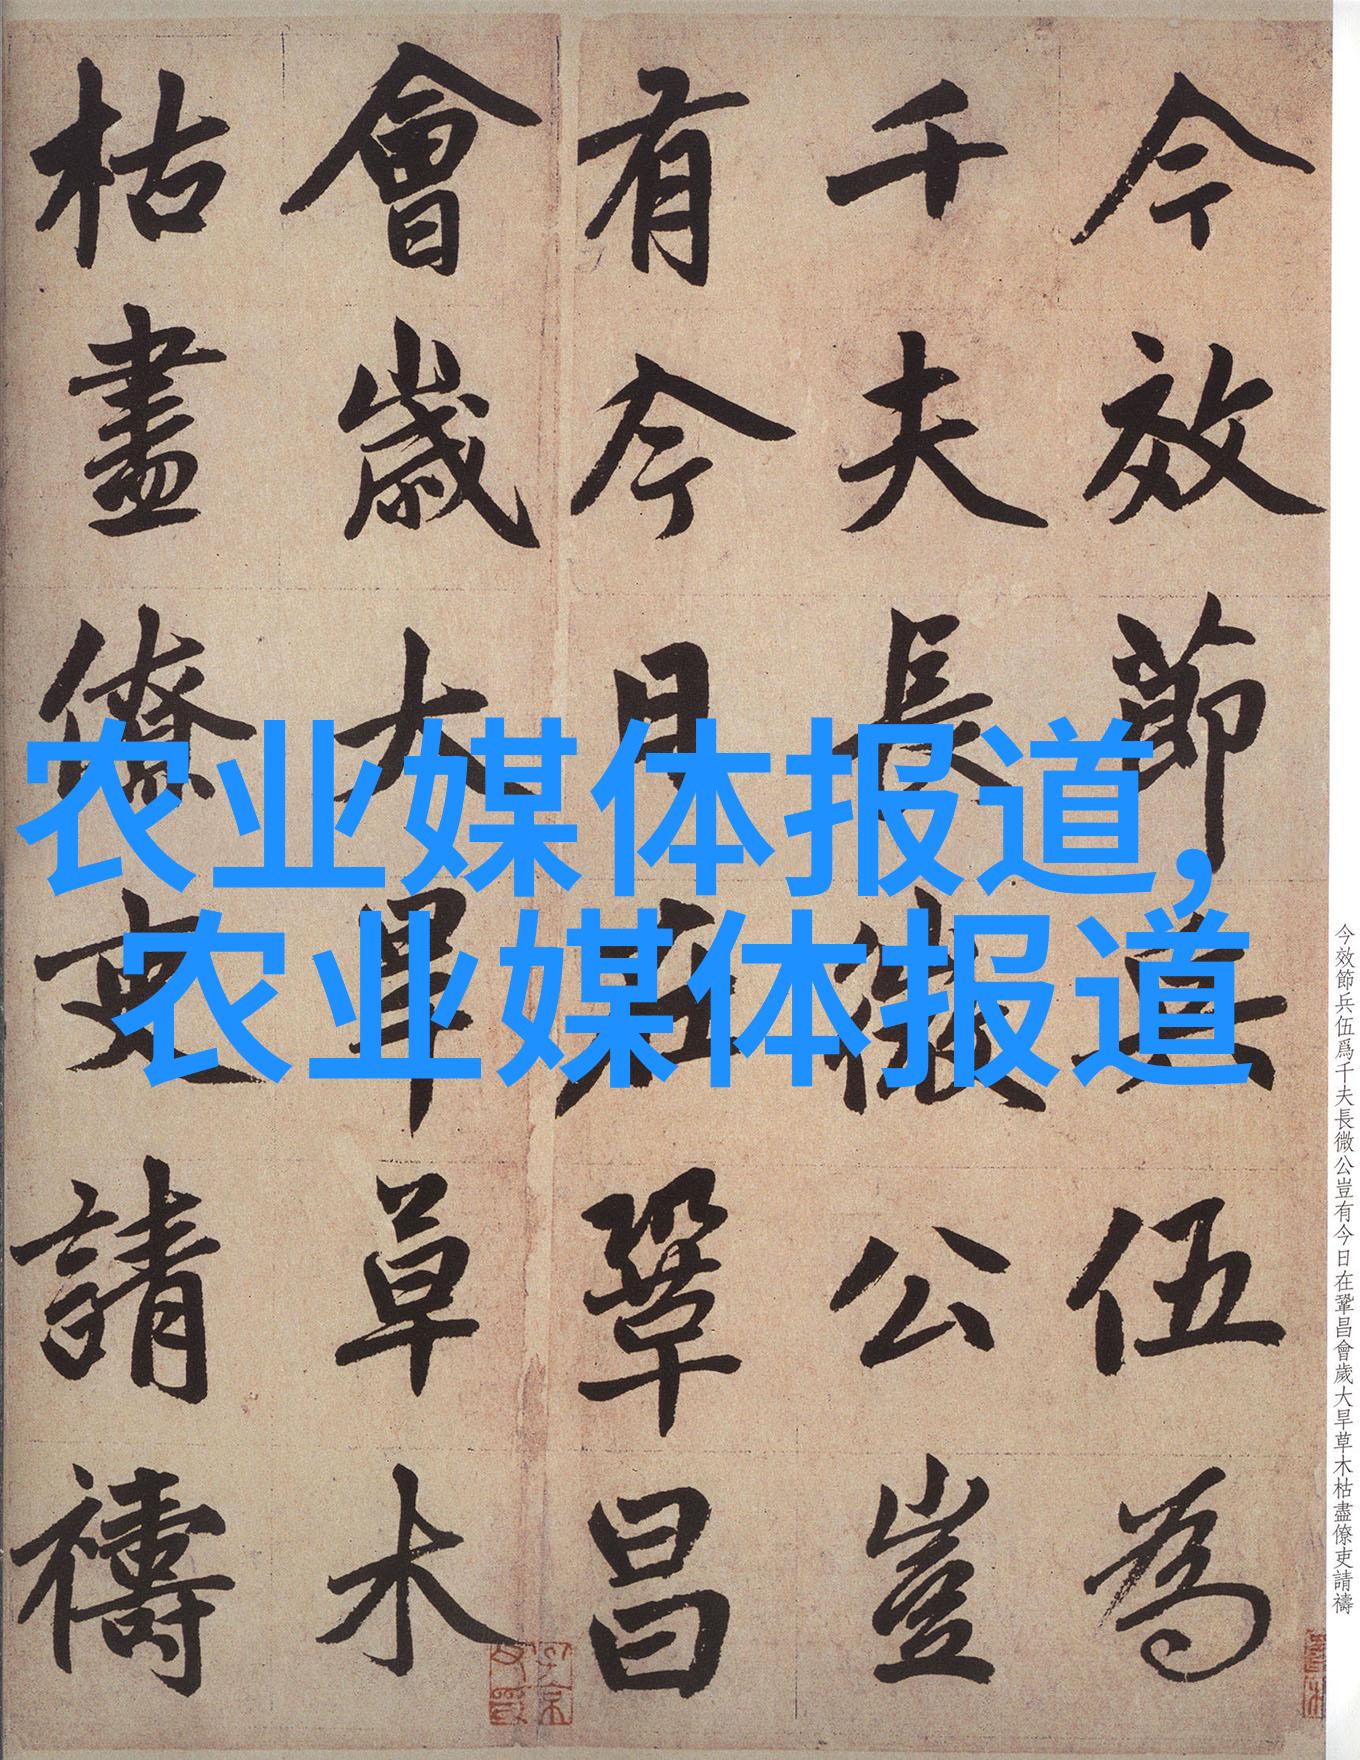 今效節兵伍為
千夫長微公豈
有今日在鞏昌
會歲大旱草木
枯盡僚吏請禱
农业媒体报道,
农业媒体报道
今效節兵伍爲千夫長微公豈有今日在鞏昌會歲大旱草木枯盡僚吏請禱